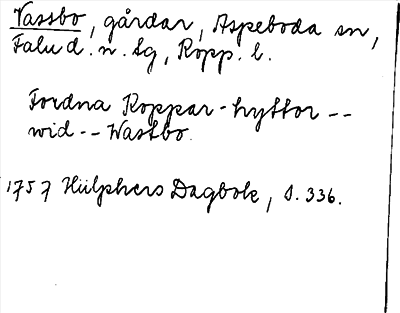 Vassbo, gårdar, Aspeboda sn,
Falu d. n. lg, Kopp. l.
Fordna Koppar-hyttor --
wid -- Wastbo.
1757 Hülphers Dagbok, s. 336.